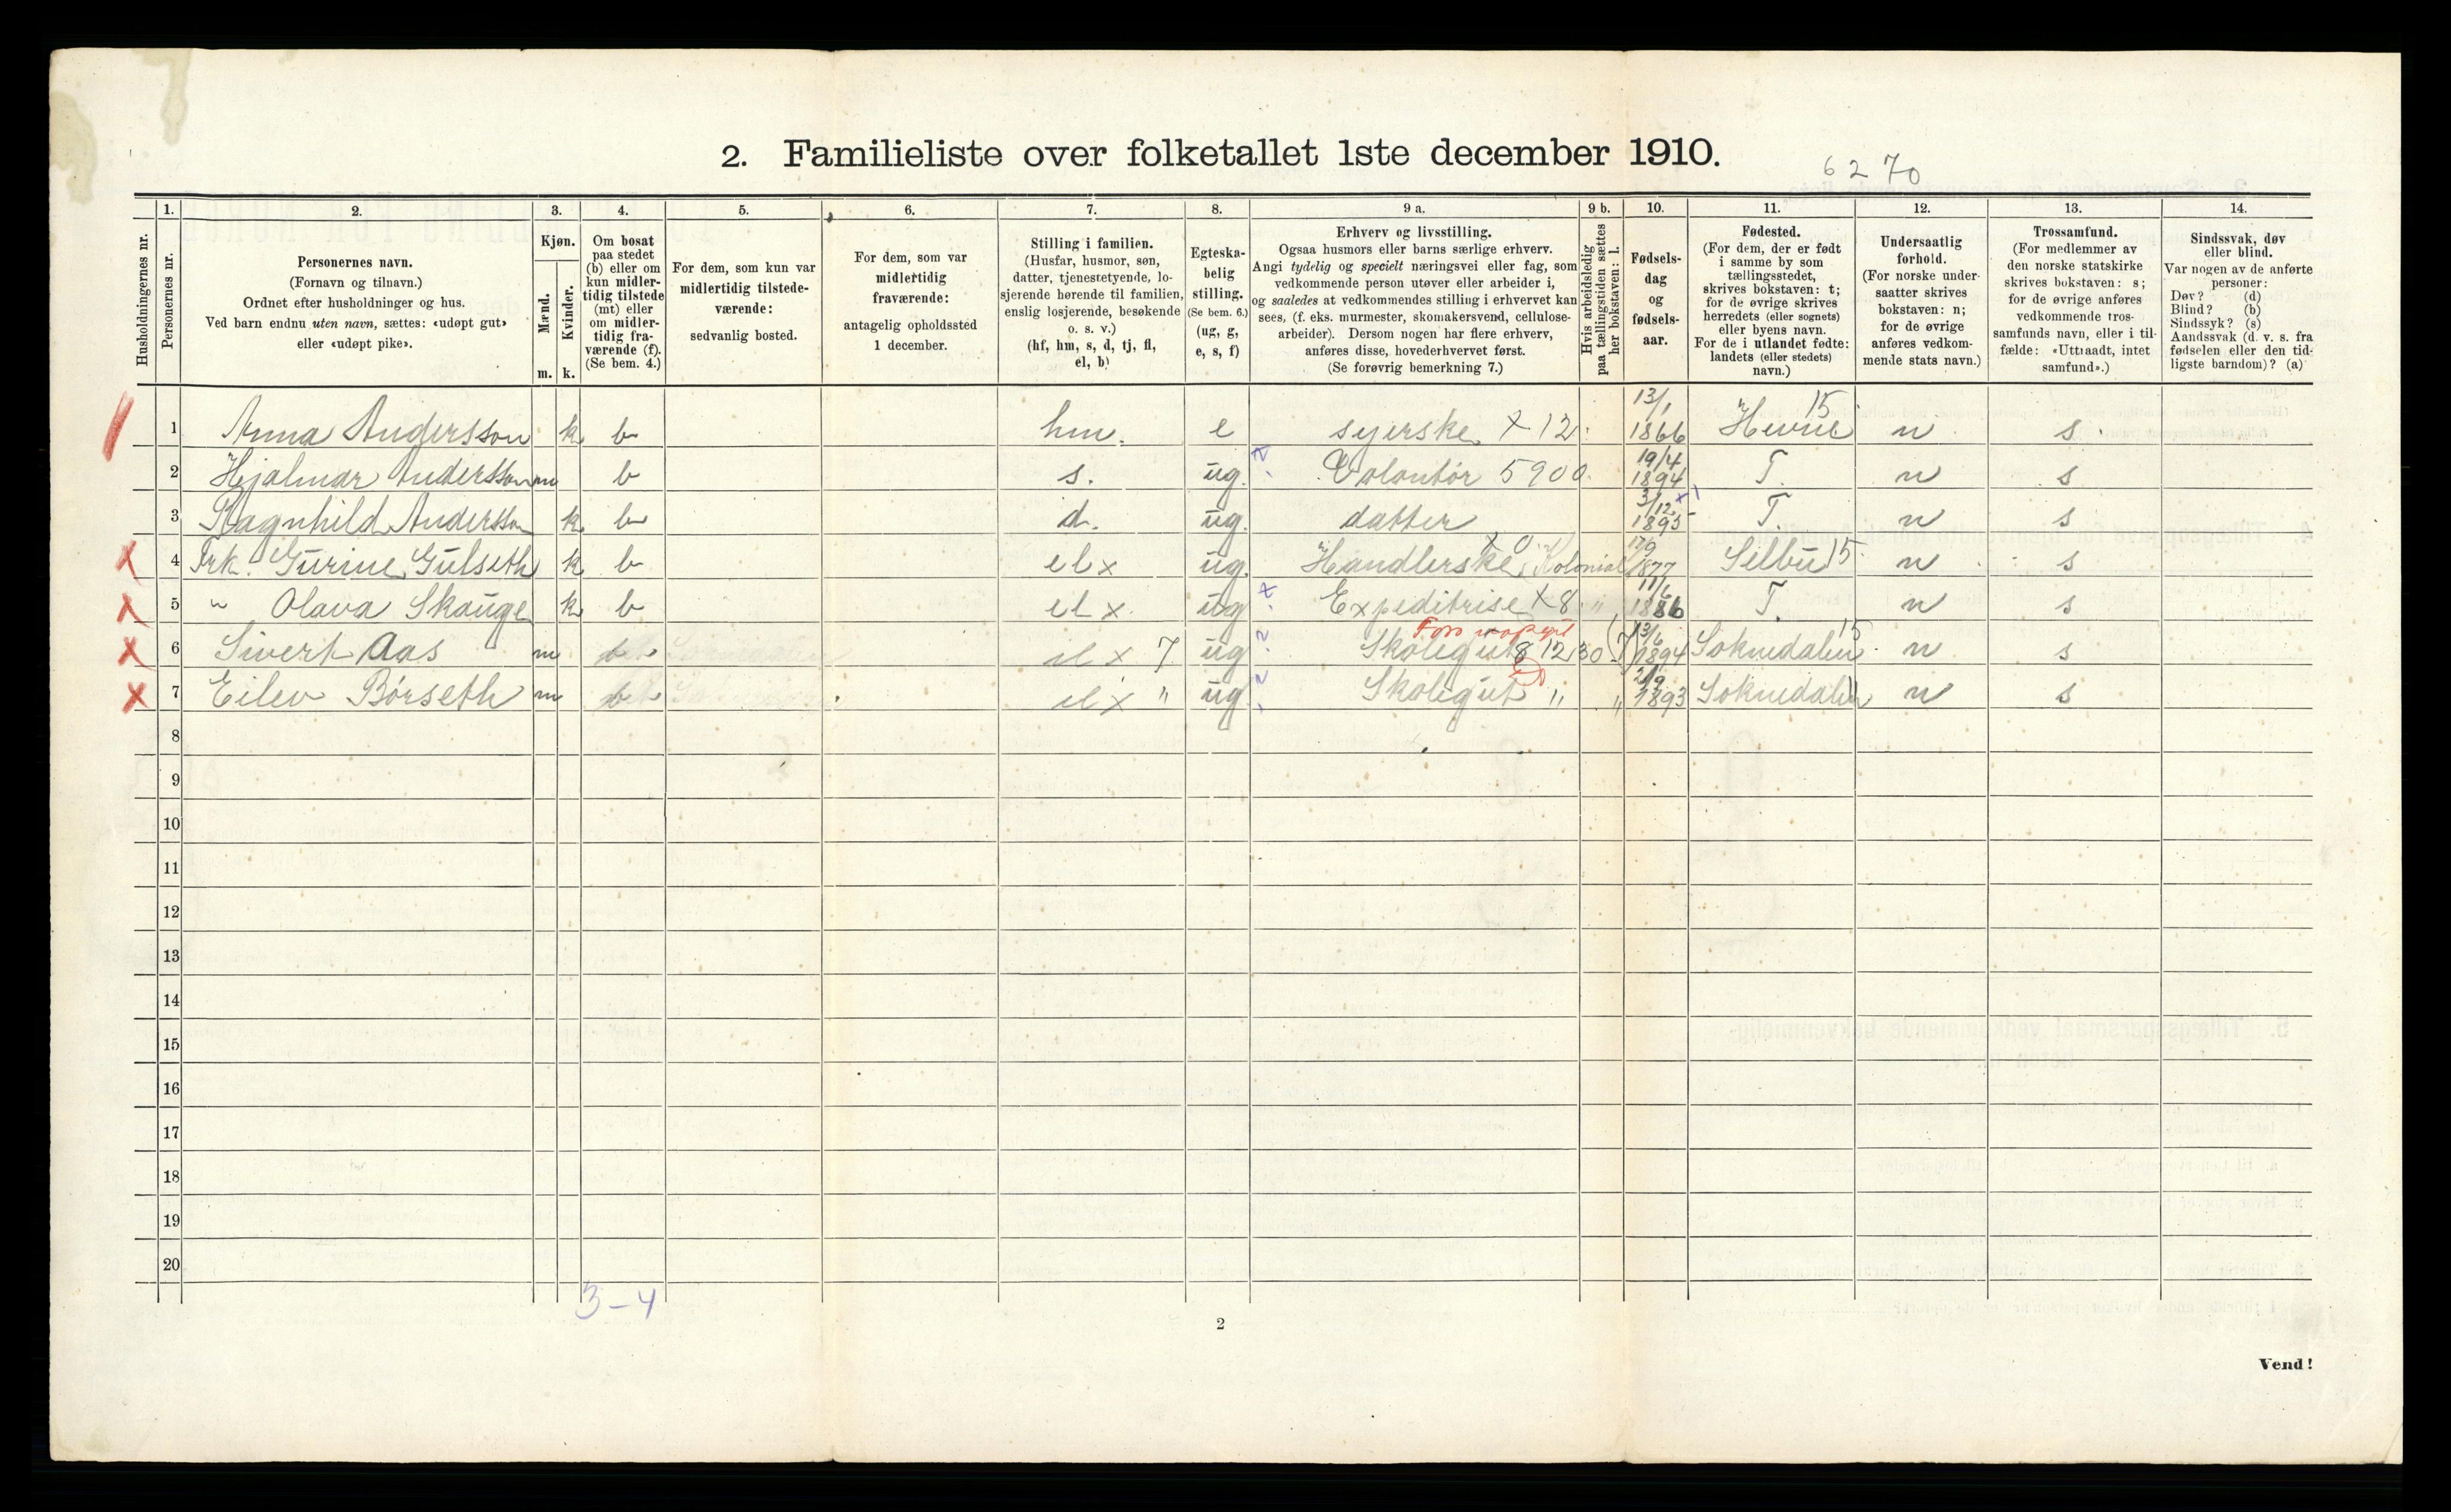 2. Familieliste over folketallet 1ste december 1910.
6270
Husholdningernes nr.
1. Personernes nr.
2. Personernes navn.
(Fornavn og tilnavn.)
Ordnet efter husholdninger og hus.
Ved barn endnu uten navn, sættes: «udøpt gut»
eller «udøpt pike».
3. Kjøn.
Mænd. m.
Kvinder. k.
4. Om bosat
paa stedet
(b) eller om
kun midler-
tidig tilstede
(mt) eller
om midler-
tidig fra-
værende (f).
(Se bem. 4.)
5. For dem, som kun var
midlertidig tilstede-
værende:
sedvanlig bosted.
6. For dem, som var
midlertidig
fraværende:
antagelig opholdssted
1 december.
7. Stilling i familien.
(Husfar, husmor, søn,
datter, tjenestetyende, lo-
sjerende hørende til familien,
enslig losjerende, besøkende
o. s. v.)
(hf, hm, s, d, tj, fl,
el, b)
8. Egteska-
belig
stilling.
(Se bem. 6.)
(ug, g,
e, s, f)
9 a. Erhverv og livsstilling.
Ogsaa husmors eller barns særlige erhverv.
Angi tydelig og specielt næringsvei eller fag, som
vedkommende person utøver eller arbeider i,
og saaledes at vedkommendes stilling i erhvervet kan
sees, (f. eks. murmester, skomakersvend, cellulose-
arbeider). Dersom nogen har flere erhverv,
anføres disse, hovederhvervet først.
(Se forøvrig bemerkning 7.)
9 b. Hvis arbeidsledig
paa tællingstiden sættes
her bokstaven: l.
10. Fødsels-
dag
og
fødsels-
aar.
11. Fødested.
(For dem, der er født
i samme by som
tællingsstedet,
skrives bokstaven: t;
for de øvrige skrives
herredets (eller sognets)
eller byens navn.
For de i utlandet fødte:
landets (eller stedets)
navn.)
12. Undersaatlig
forhold.
(For norske under-
saatter skrives
bokstaven: n;
for de øvrige
anføres vedkom-
mende stats navn.)
13. Trossamfund.
(For medlemmer av
den norske statskirke
skrives bokstaven: s;
for de øvrige anføres
vedkommende tros-
samfunds navn, eller i til-
fælde: «Uttraadt, intet
samfund».)
14. Sindssvak, døv
eller blind.
Var nogen av de anførte
personer:
Døv? (d)
Blind? (b)
Sindssyk? (s)
Aandssvak (d. v. s. fra
fødselen eller den tid-
ligste barndom)? (a)
1 Anna Andersson k b hm. e syerske x 12 13/1 1866 Hevne 15 n s.
2 Hjalmar Andersson m b s. ug. Volontør 5900 19/4 1894 T. n s
3 Ragnhild Andersson k b d. ug. datter 3/12 1895 T. n s
x 4 Frk. Gurine Gulseth k b el x ug. Handlerske, Kolonial x 0 17/9 1877 Selbu 15 n s
x 5 " Olava Skauge k b el x ug Expeditrise x 8 " 11/6 1886 T. n s
x 6 Sivert Aas m b el x 7 ug Skolegut 8 12 30 13/6 1894 Soknedalen 15 n s
x 7 Eilev Børseth m b el x " ug Skolegut " " 2/9 1893 Soknedalen " n s
8
9
10
11
12
13
14
15
16
17
18
19
20
3-4
2
Vend!